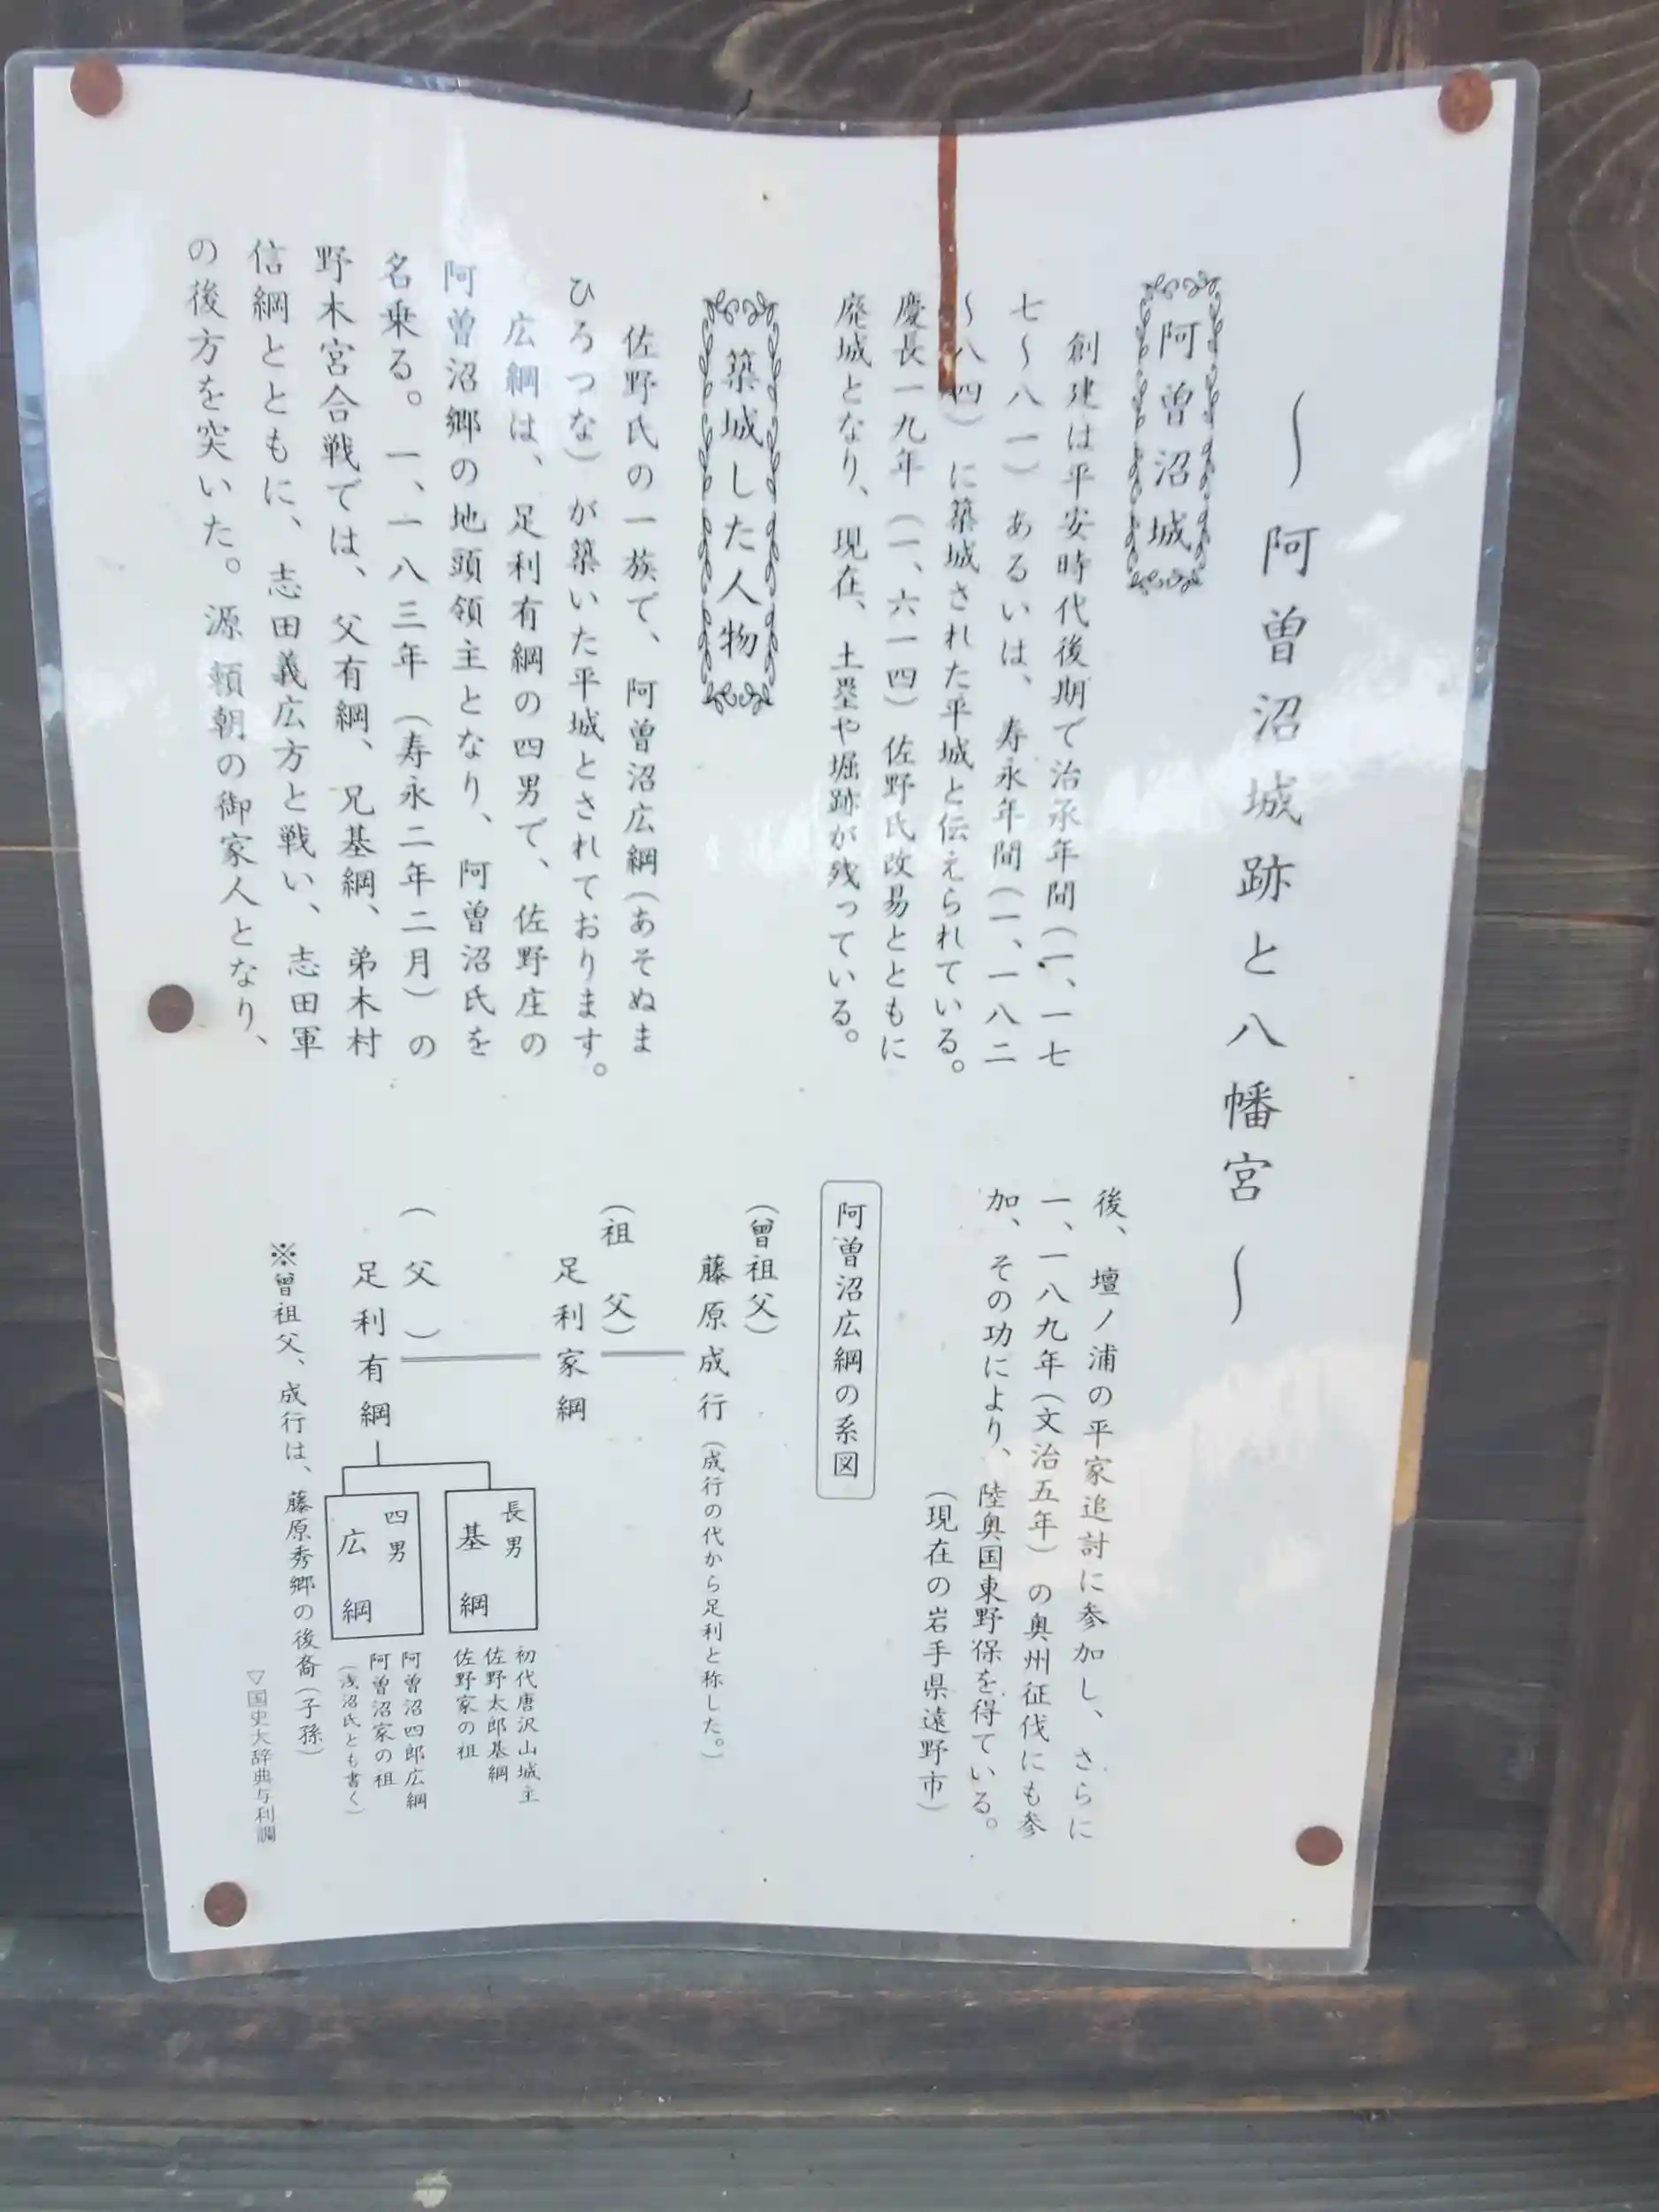 ～阿曽沼城跡と八幡宮～
阿曽沼城
創建は平安時代後期で治承年間（一、一七
七～八一）あるいは、寿永年間（一、一八二
～八四）に築城された平城と伝えられている。
慶長一九年（一、六一四）佐野氏改易とともに
廃城となり、現在、土塁や堀跡が残っている。
築城した人物
佐野氏の一族で、阿曽沼広綱（あそぬま
ひろつな）が築いた平城とされております。
広綱は、足利有綱の四男で、佐野庄の
阿曽沼郷の地頭領主となり、阿曽沼氏を
名乗る。一、一八三年（寿永二年二月）の
野木宮合戦では、父有綱、兄基綱、弟木村
信綱とともに、志田義広方と戦い、志田軍
の後方を突いた。源頼朝の御家人となり、
後、壇ノ浦の平家追討に参加し、さらに
一、一八九年（文治五年）の奥州征伐にも参
加、その功により、陸奥国東野保を得ている。
（現在の岩手県遠野市）
阿曽沼広綱の系図
（曾祖父）
藤原成行（成行の代から足利と称した。）
（祖父）
足利家綱
（父）
足利有綱
長男
基綱
初代唐沢山城主
佐野太郎基綱
佐野家の祖
四男
広綱
阿曽沼四郎広綱
阿曽沼家の祖
（浅沼氏とも書く）
※曾祖父、成行は、藤原秀郷の後裔（子孫）
▽国史大辞典与利調